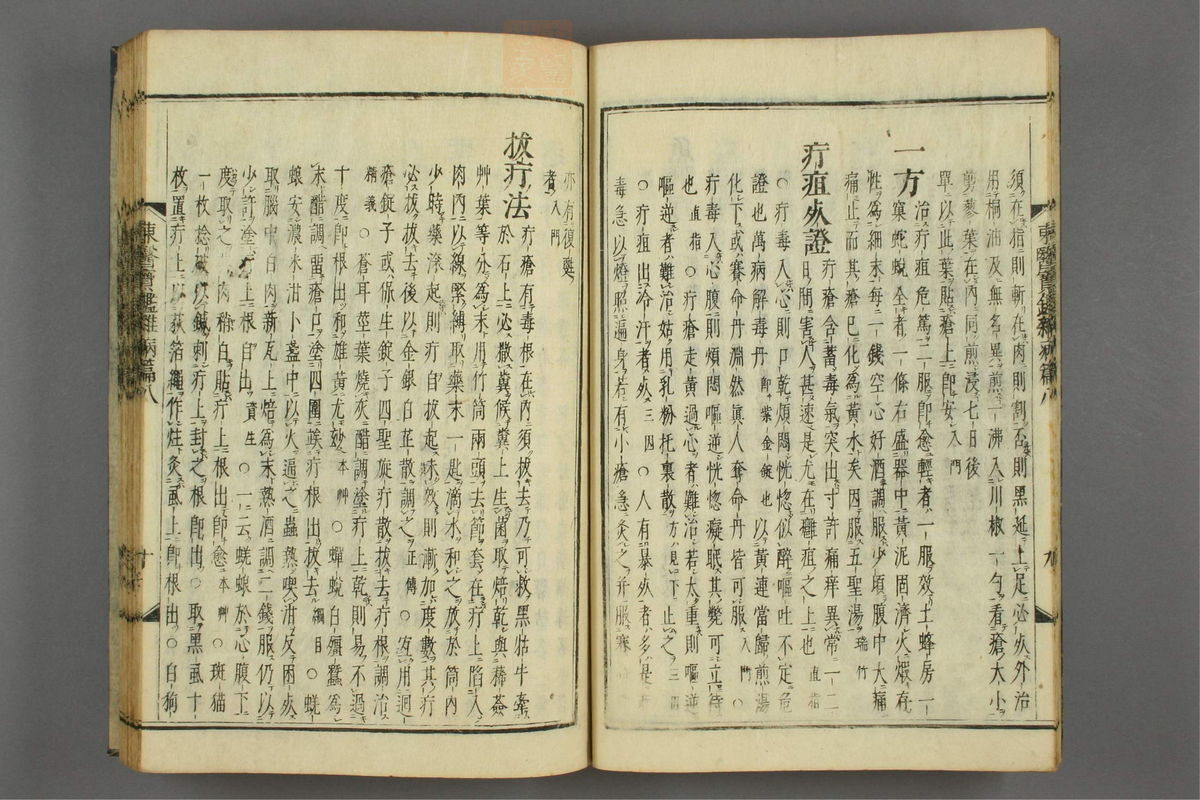 須在指則斬在肉則割否則黑延上足必死外治
用桐油及無名異煎一沸入川椒一勺看瘡大小
剪蓼葉在內同煎浸七日後
單以此葉貼瘡上卽安入門
一方治疔疽危篤二服卽愈輕者一服效土蜂房一
窠蛇蛻全者一條右盛器中黃泥固濟火煆存
性爲細末每一錢空心好酒調服少頃腹中大痛
痛止而其瘡已化爲黃水矣因服五聖湯瑞竹
疔疽死證疔瘡含蓄毒氣突出寸許痛痒異常一二
日間害人甚速是尤在癰疽之上也直指
○疔毒入心則口乾煩悶恍惚似醉嘔吐不定危
證也萬病解毒丹卽紫金錠也以黃連當歸煎湯
化下或賽命丹淵然眞人奪命丹皆可服入門○
疔毒入心腹則煩悶嘔逆恍惚癡眠其斃可立待
也直指○疔瘡走黃過心者難治若太重則嘔逆
嘔逆者難治姑用乳粉托裏散方見下止之
○疔疽出冷汗者死三四○人有暴死者多是疔
毒急以燈照遍身若有小瘡急灸之幷服寒
東醫寶鑑雜病篇八
九
亦有復甦
者入門
拔疔法疔瘡有毒根在內須拔去乃可救黑牯牛牽
於石上必撒糞候糞上生菌取焙乾與豨薟
艸葉等分爲末用竹筒兩頭去節套在疔上陷入
肉內以線緊縛取藥末一匙滴水和之放於筒內
少時藥滾起則疔自拔起未效則漸加度數其疔
必拔拔去後以金銀白芷散調之正傳○宜用𢌞
瘡錠子或保生錠子四聖旋疔散拔去疔根調治
精義○蒼耳莖葉燒灰醋調塗疔上乾則易不過
十度卽根出和雄黃尤玅本艸○蟬蛻白殭蠶爲
末醋調留瘡口塗四圍俟疔根出拔去綱目○蜣
蜋安濃米泔小盞中以火逼之蟲熱喫泔及困死
取腦中白肉新瓦上焙爲末熱酒調二錢服仍以
少許塗疔上根自出資生○一云蜣蜋於心腹下
度取之肉稱白貼疔上根出卽愈本艸○斑猫
一枚捻破以鍼刺疔上封之根卽出○取黑虱十
枚置疔上以荻箔繩作炷灸虱上卽根出○白狗
東醫寶鑑雜病篇八
十